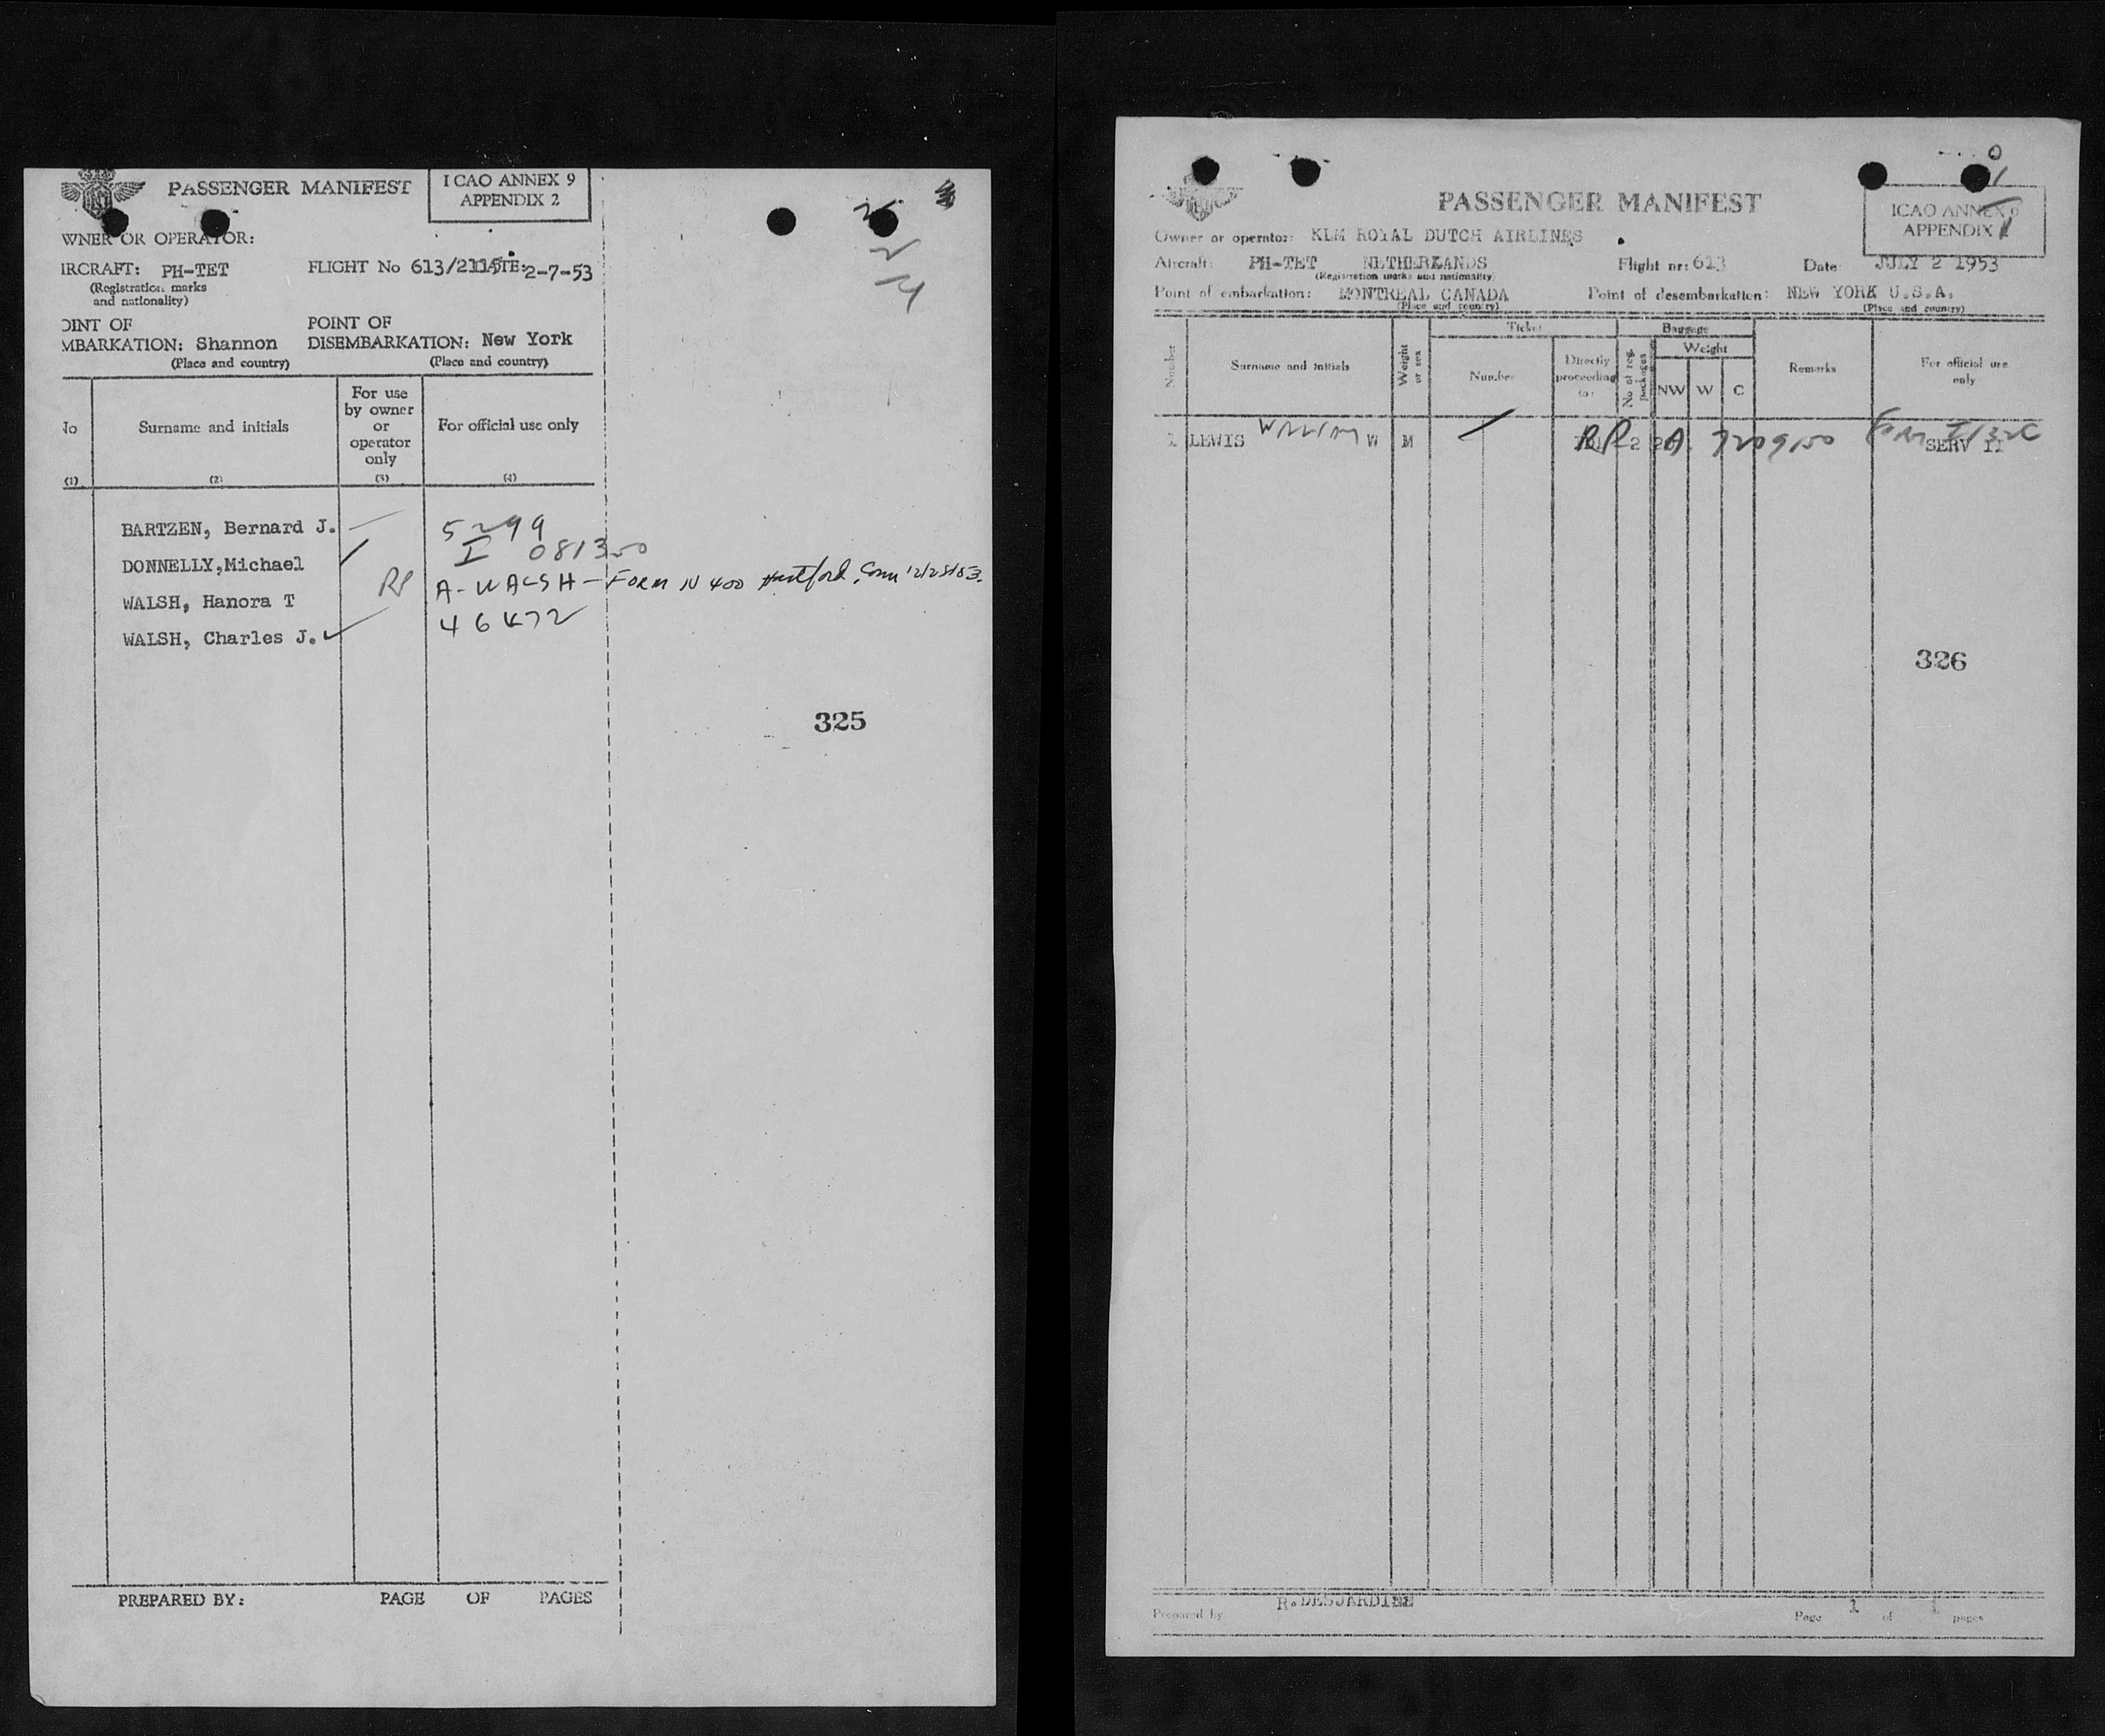 PASSENGER MANIFEST
ICAO ANNEX 9
APPENDIX 2
WNER OR OPERATOR:
IRCRAFT: PH-TET
FLIGHT No 613/211 2-7-53
(Registration marks
and nationality)
OINT OF
MBARKATION: Shannon
(Place and country)
POINT OF
DISEMBARKATION: New York
(Place and country)
No
Surname and initials
For use
by owner
or
operator
only
For official use only
(1) (2) (3) (4)
BARTZEN, Bernard J.
5299
DONNELLY, Michael
I 081350
WALSH, Hanora T
RP A-WALSH - FORM N 400 Hartford, Conn 12/23/53.
WALSH, Charles J.
46472
325
PREPARED BY: PAGE OF PAGES
PASSENGER MANIFEST
ICAO ANNEX 9
APPENDIX
Owner or operator: KLM ROYAL DUTCH AIRLINES
Aircraft: PH-TET NETHERLANDS Flight nr: 613 Date: JULY 2 1953
(Registration marks and nationality)
Point of embarkation: MONTREAL CANADA Point of desembarkation: NEW YORK U.S.A.
(Place and country) (Place and country)
Number
Surname and initials
Weight
or sex
Ticket
Number
Directly
proceeding
to:
Baggage
No of reg.
packages
Weight
NW W C
Remarks
For official use
only
1 LEWIS William W M RP 2 A 7209150 SERV II
326
Prepared by R.DESJARDINS Page 1 of 1 pages